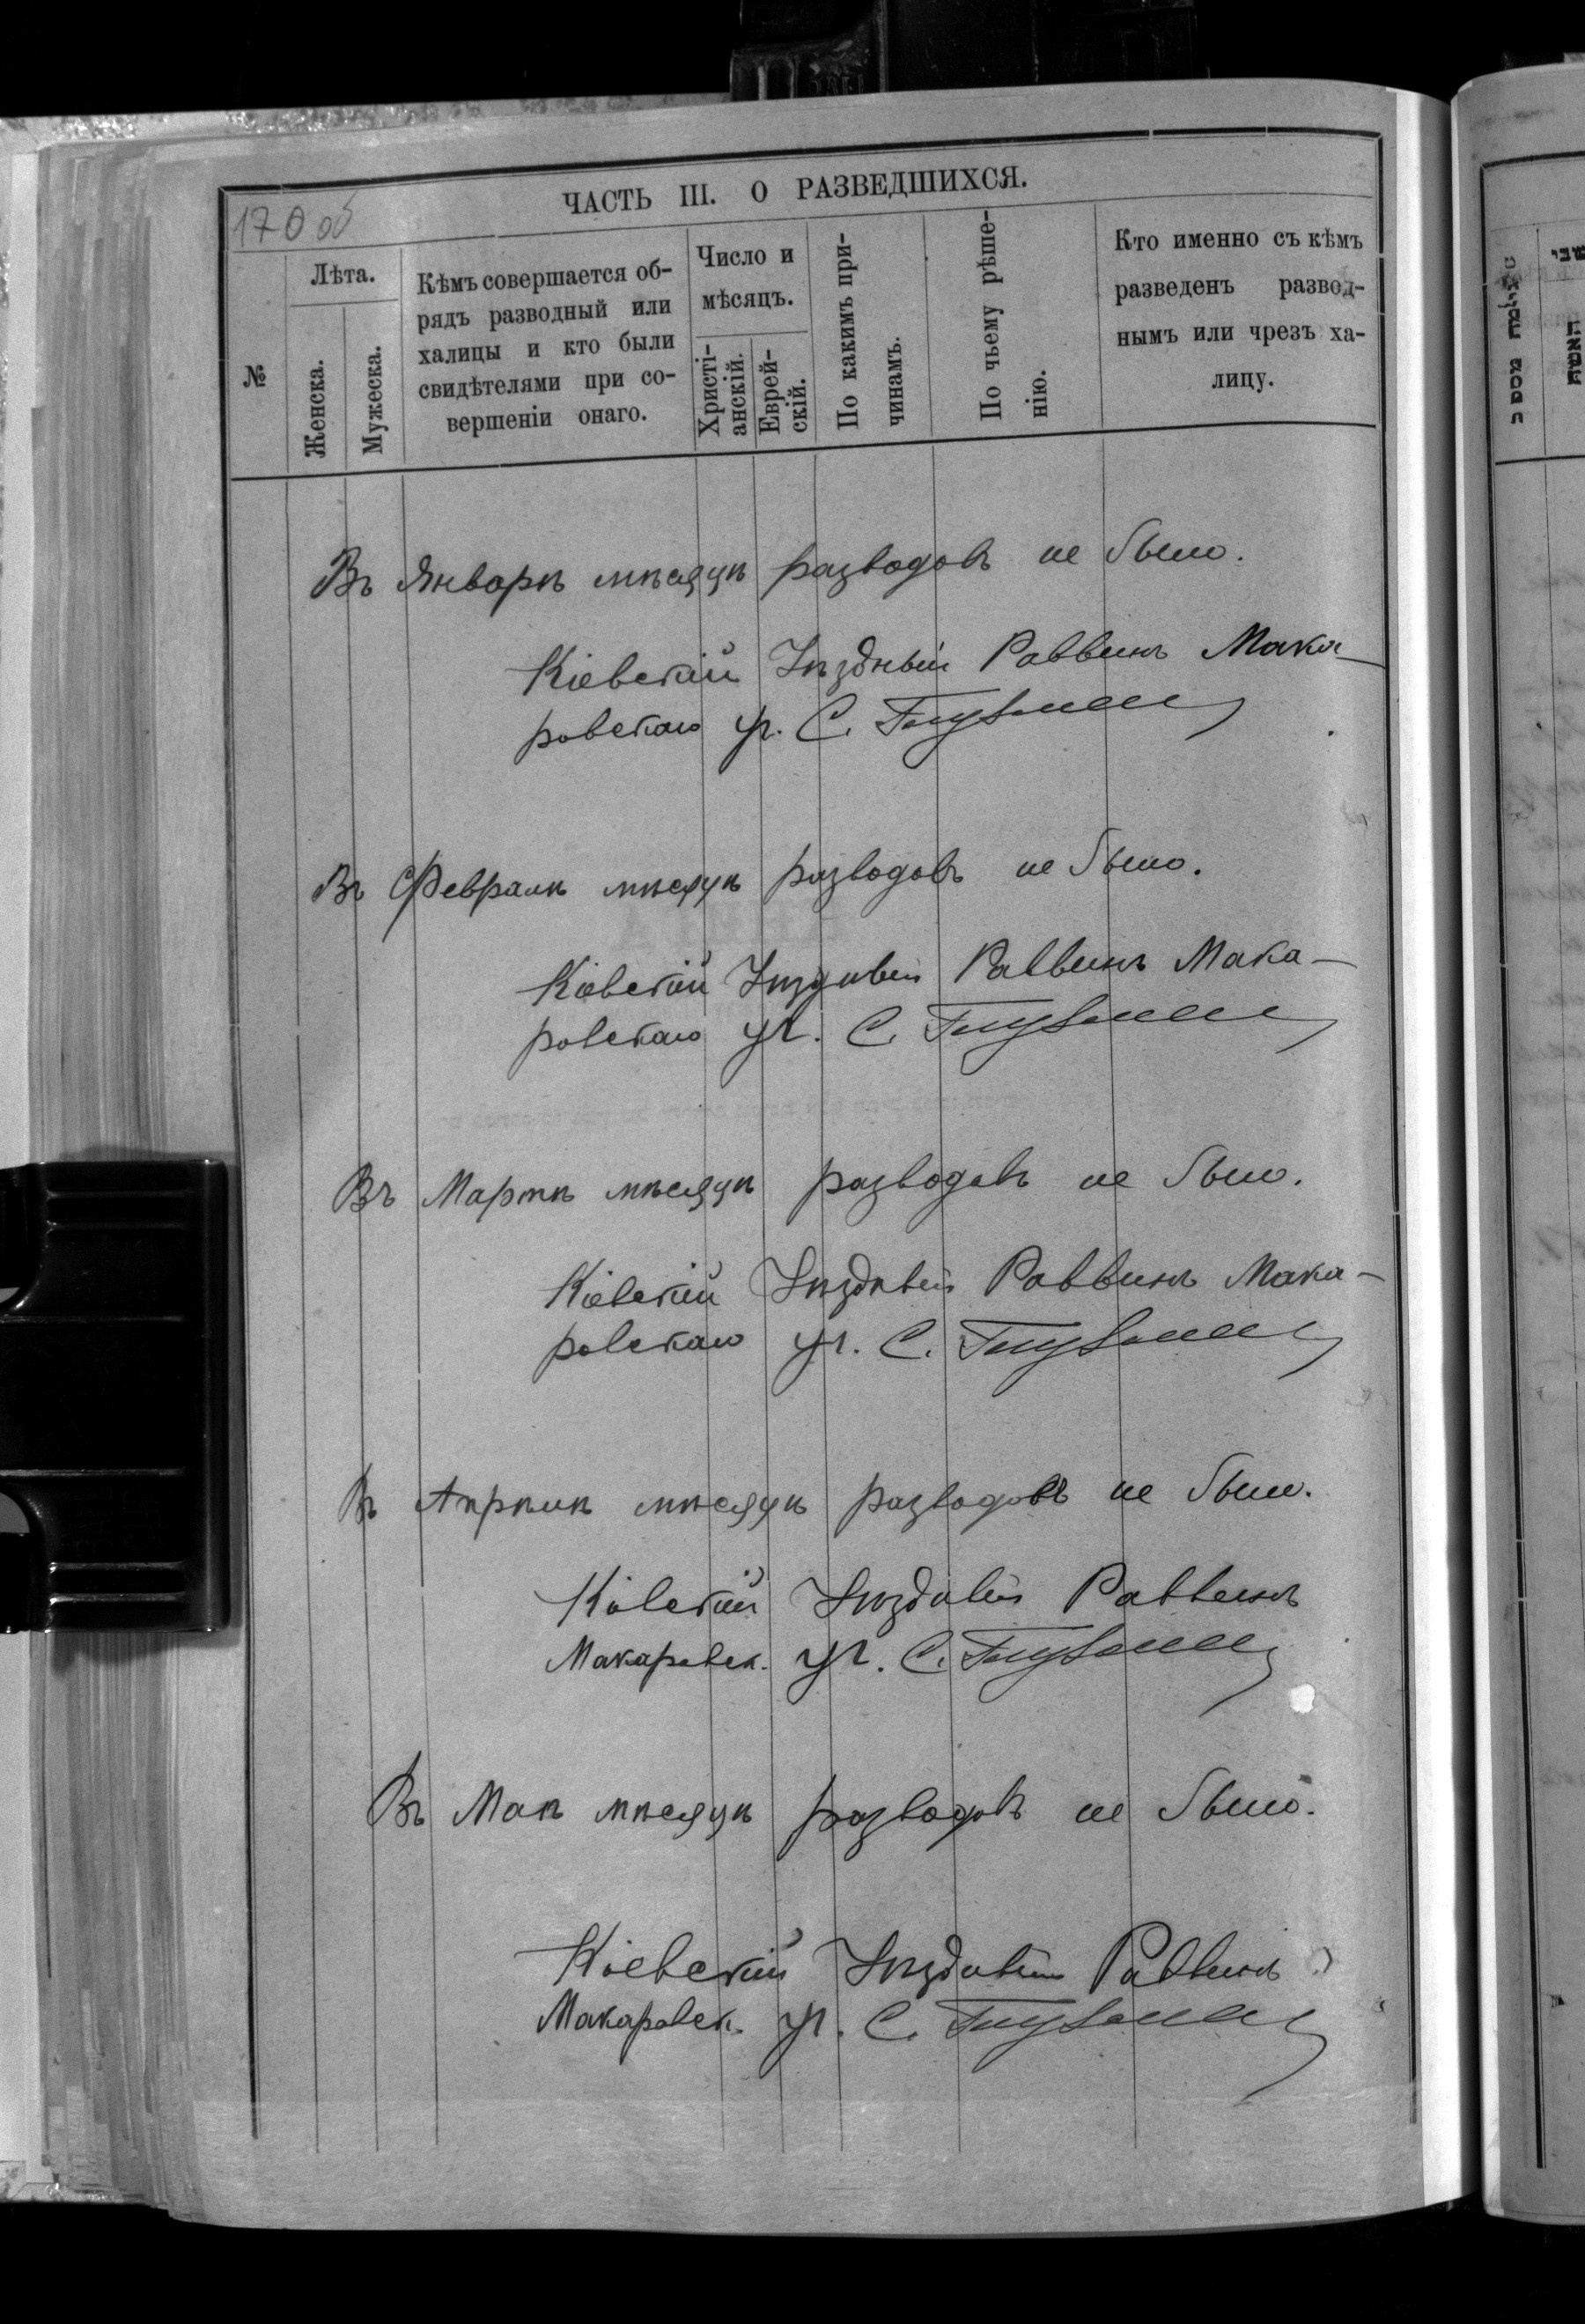 170 об
ЧАСТЬ III. О РАЗВЕДШИХСЯ.
№
Лѣта.
Женска.
Мужеска.
Кѣмъ совершается об-
рядъ разводный или
халицы и кто были
свидѣтелями при со-
вершеніи онаго.
Число и
мѣсяцъ.
Христі-
анскій.
Еврей-
скій.
По какимъ при-
чинамъ.
По чьему рѣше-
нію.
Кто именно съ кѣмъ
разведенъ развод-
нымъ или чрезъ ха-
лицу.
Въ Январѣ мѣсяцѣ разводовъ не было.
Кіевскій Уѣздный Раввинъ Мака-
ровскаго уч. С.
Въ Февралѣ мѣсяцѣ разводовъ не было.
Кіевскій Уѣздный Раввинъ Мака-
ровскаго уч. С.
Въ Мартѣ мѣсяцѣ разводовъ не было.
Кіевскій Уѣздный Раввинъ Мака-
ровскаго уч. С.
Въ Апрѣлѣ мѣсяцѣ разводовъ не было.
Кіевскій Уѣздный Раввинъ
Макаровск. уч. С.
Въ Маѣ мѣсяцѣ разводовъ не было.
Кіевскій Уѣздный Раввинъ
Макаровск. уч. С.